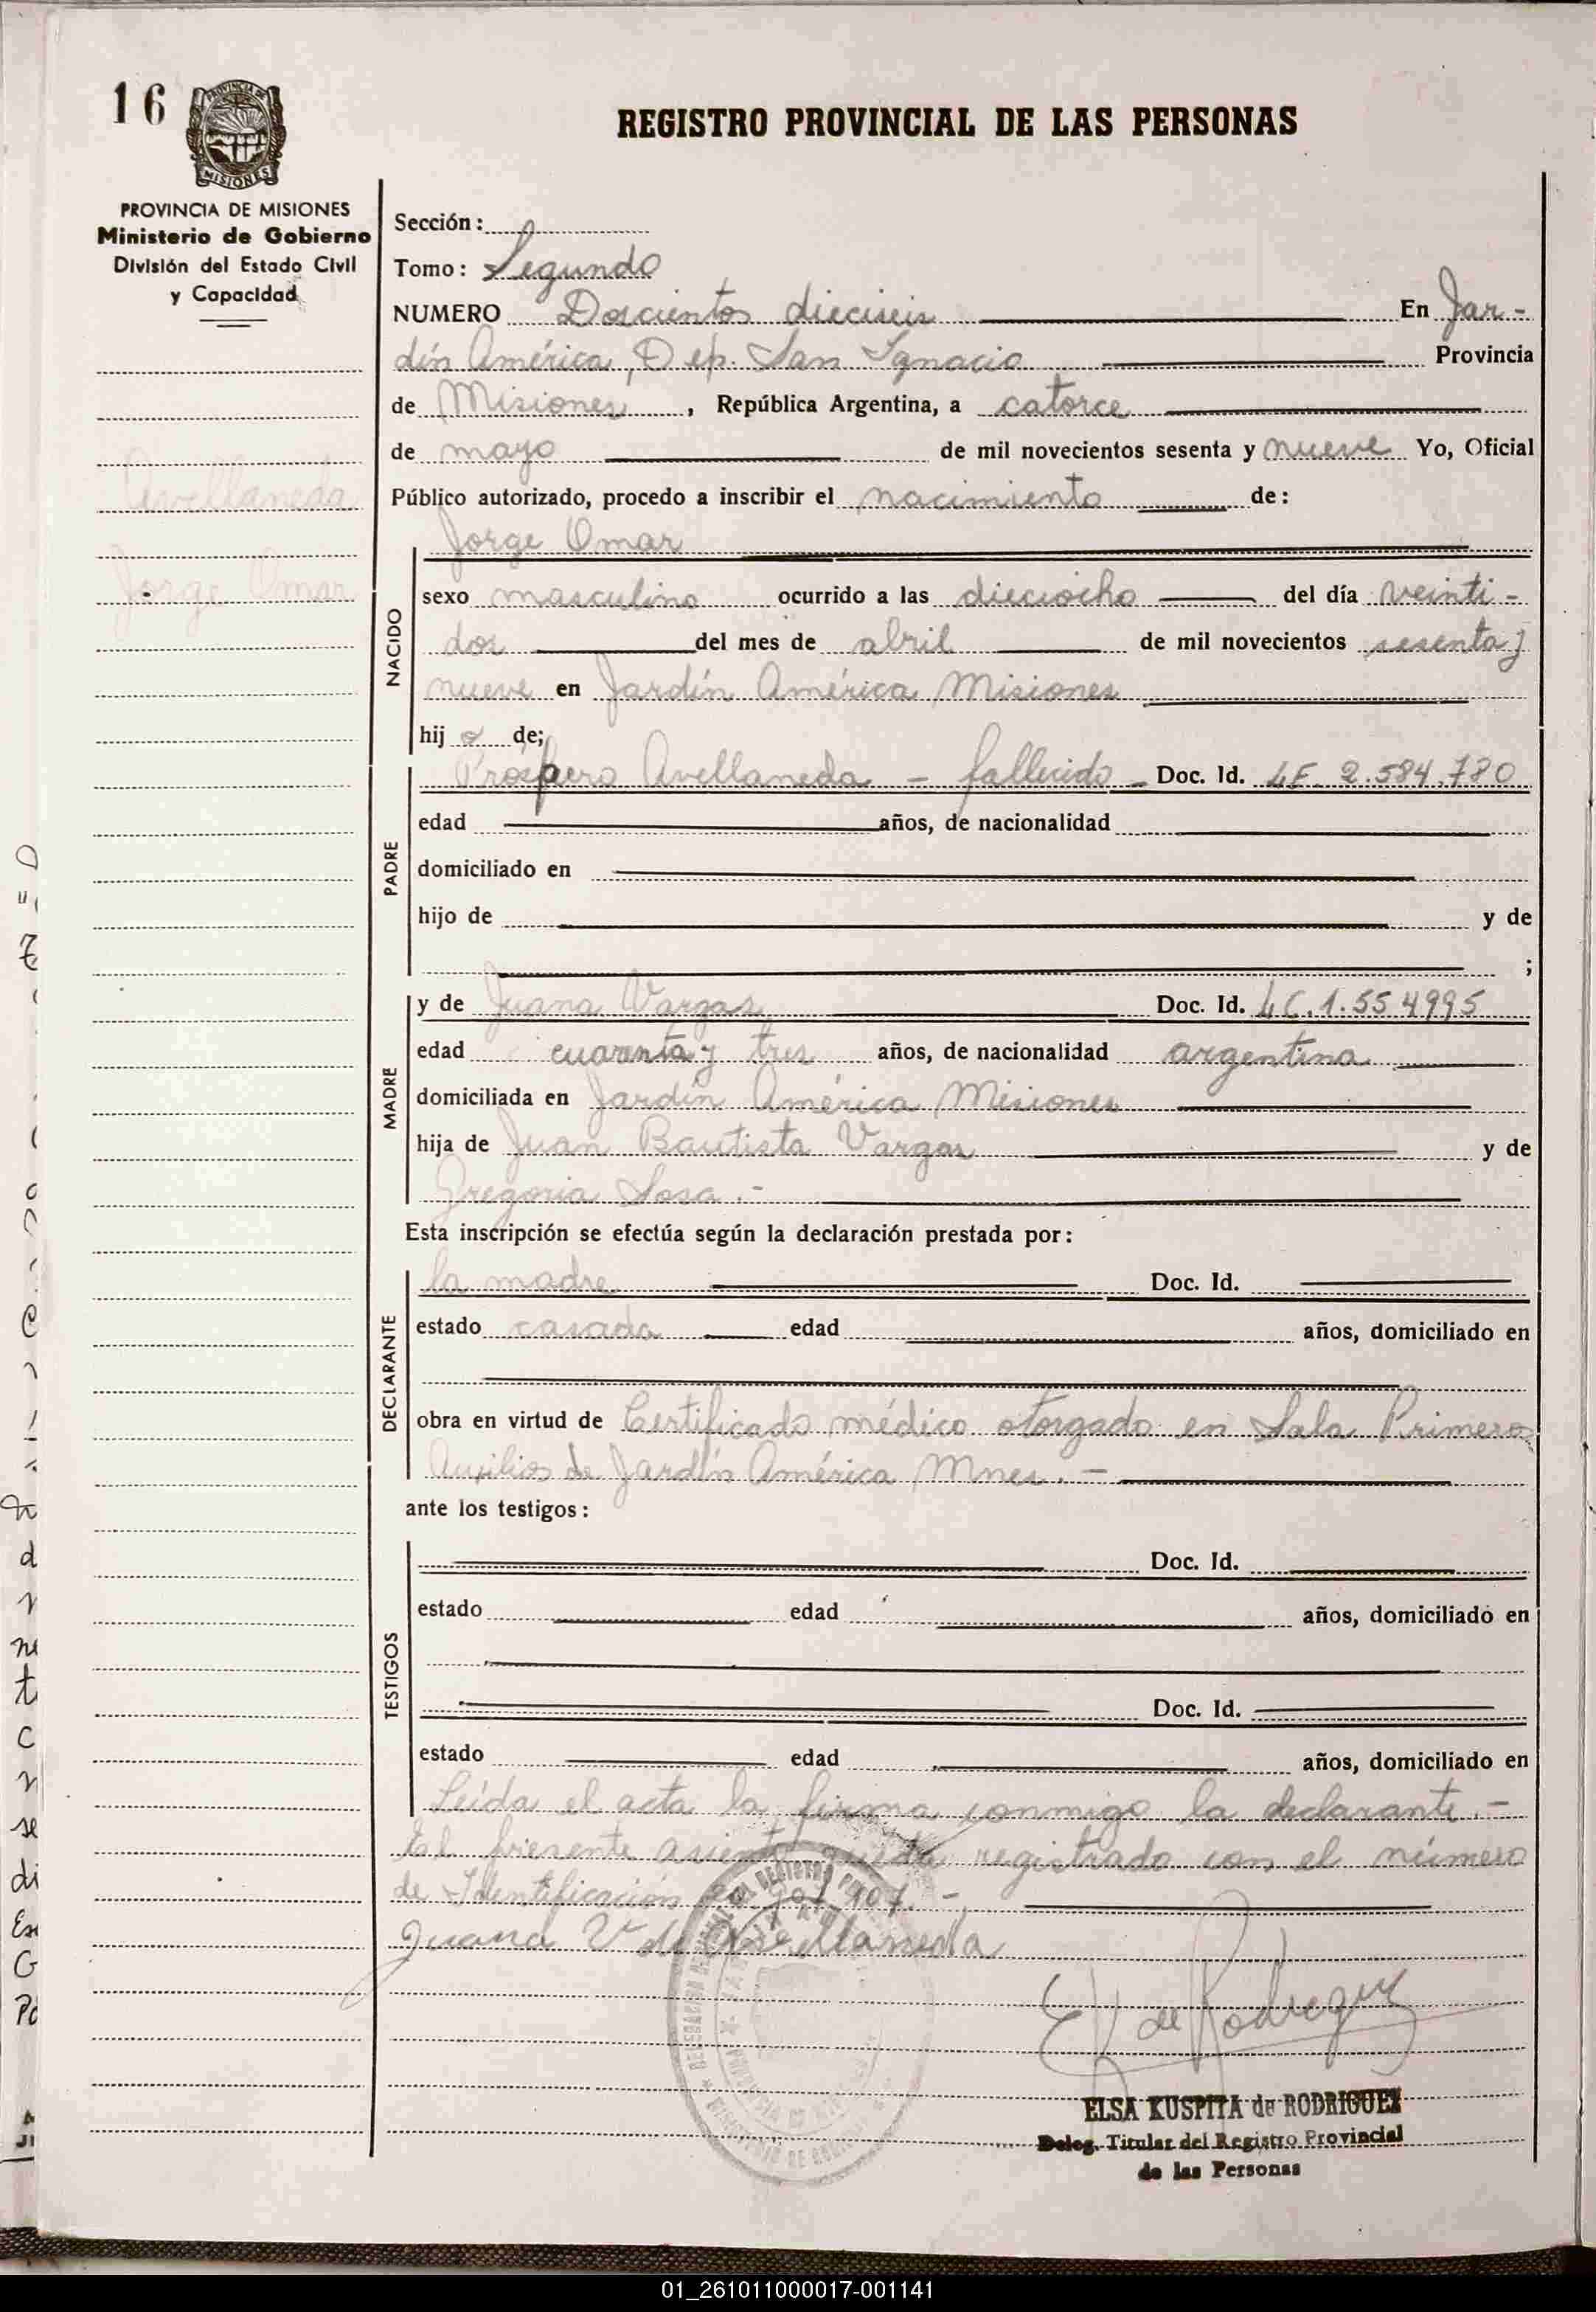 16
PROVINCIA DE MISIONES
REGISTRO PROVINCIAL DE LAS PERSONAS
PROVINCIA DE MISIONES
Ministerio de Gobierno
División del Estado Civil
y Capacidad
Avellaneda
Jorge Omar
Sección:
Tomo: Segundo
NUMERO Doscientos dieciseis En Jar-
dín América, Dep. San Ignacio Provincia
de Misiones, República Argentina, a catorce
de mayo de mil novecientos sesenta y nueve Yo, Oficial
Público autorizado, procedo a inscribir el nacimiento de:
Jorge Omar
NACIDO
sexo masculino ocurrido a las dieciocho del día veinti-
dos del mes de abril de mil novecientos sesenta y
nueve en Jardín América Misiones
hijo de;
PADRE
Próspero Avellaneda - fallecido - Doc. Id. LE. 2.584.780
edad años, de nacionalidad
domiciliado en
hijo de y de
;
MADRE
y de Juana Vargas Doc. Id. LC.1.554995
edad cuarenta y tres años, de nacionalidad argentina
domiciliada en Jardín América Misiones
hija de Juan Bautista Vargas y de
Gregoria Sosa.-
Esta inscripción se efectúa según la declaración prestada por:
DECLARANTE
la madre Doc. Id.
estado casada edad años, domiciliado en
obra en virtud de Certificado médico otorgado en Sala Primeros
Auxilios de Jardín América Mnes.-
ante los testigos:
TESTIGOS
Doc. Id.
estado edad años, domiciliado en
Doc. Id.
estado edad años, domiciliado en
Leída el acta la firma conmigo la declarante.-
El presente asiento queda registrado con el número
de Identificación
Juana V de Avellaneda
EK de Rodriguez
ELSA KUSPITA de RODRIGUEZ
Deleg. Titular del Registro Provincial
de las Personas
01_261011000017-001141